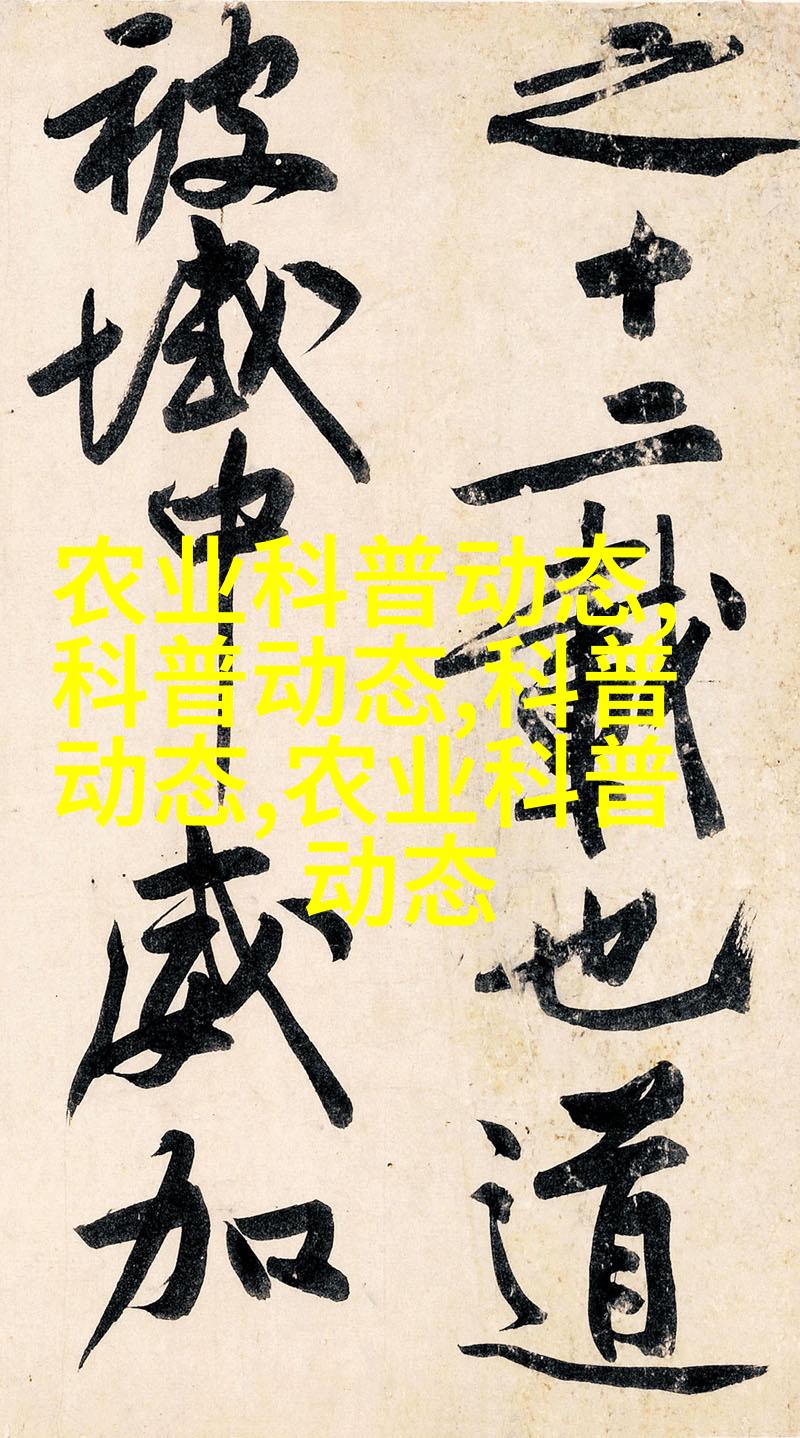 之十二載也道
被域中威加
农业科普动态,
科普动态,科普
动态,农业科普
动态